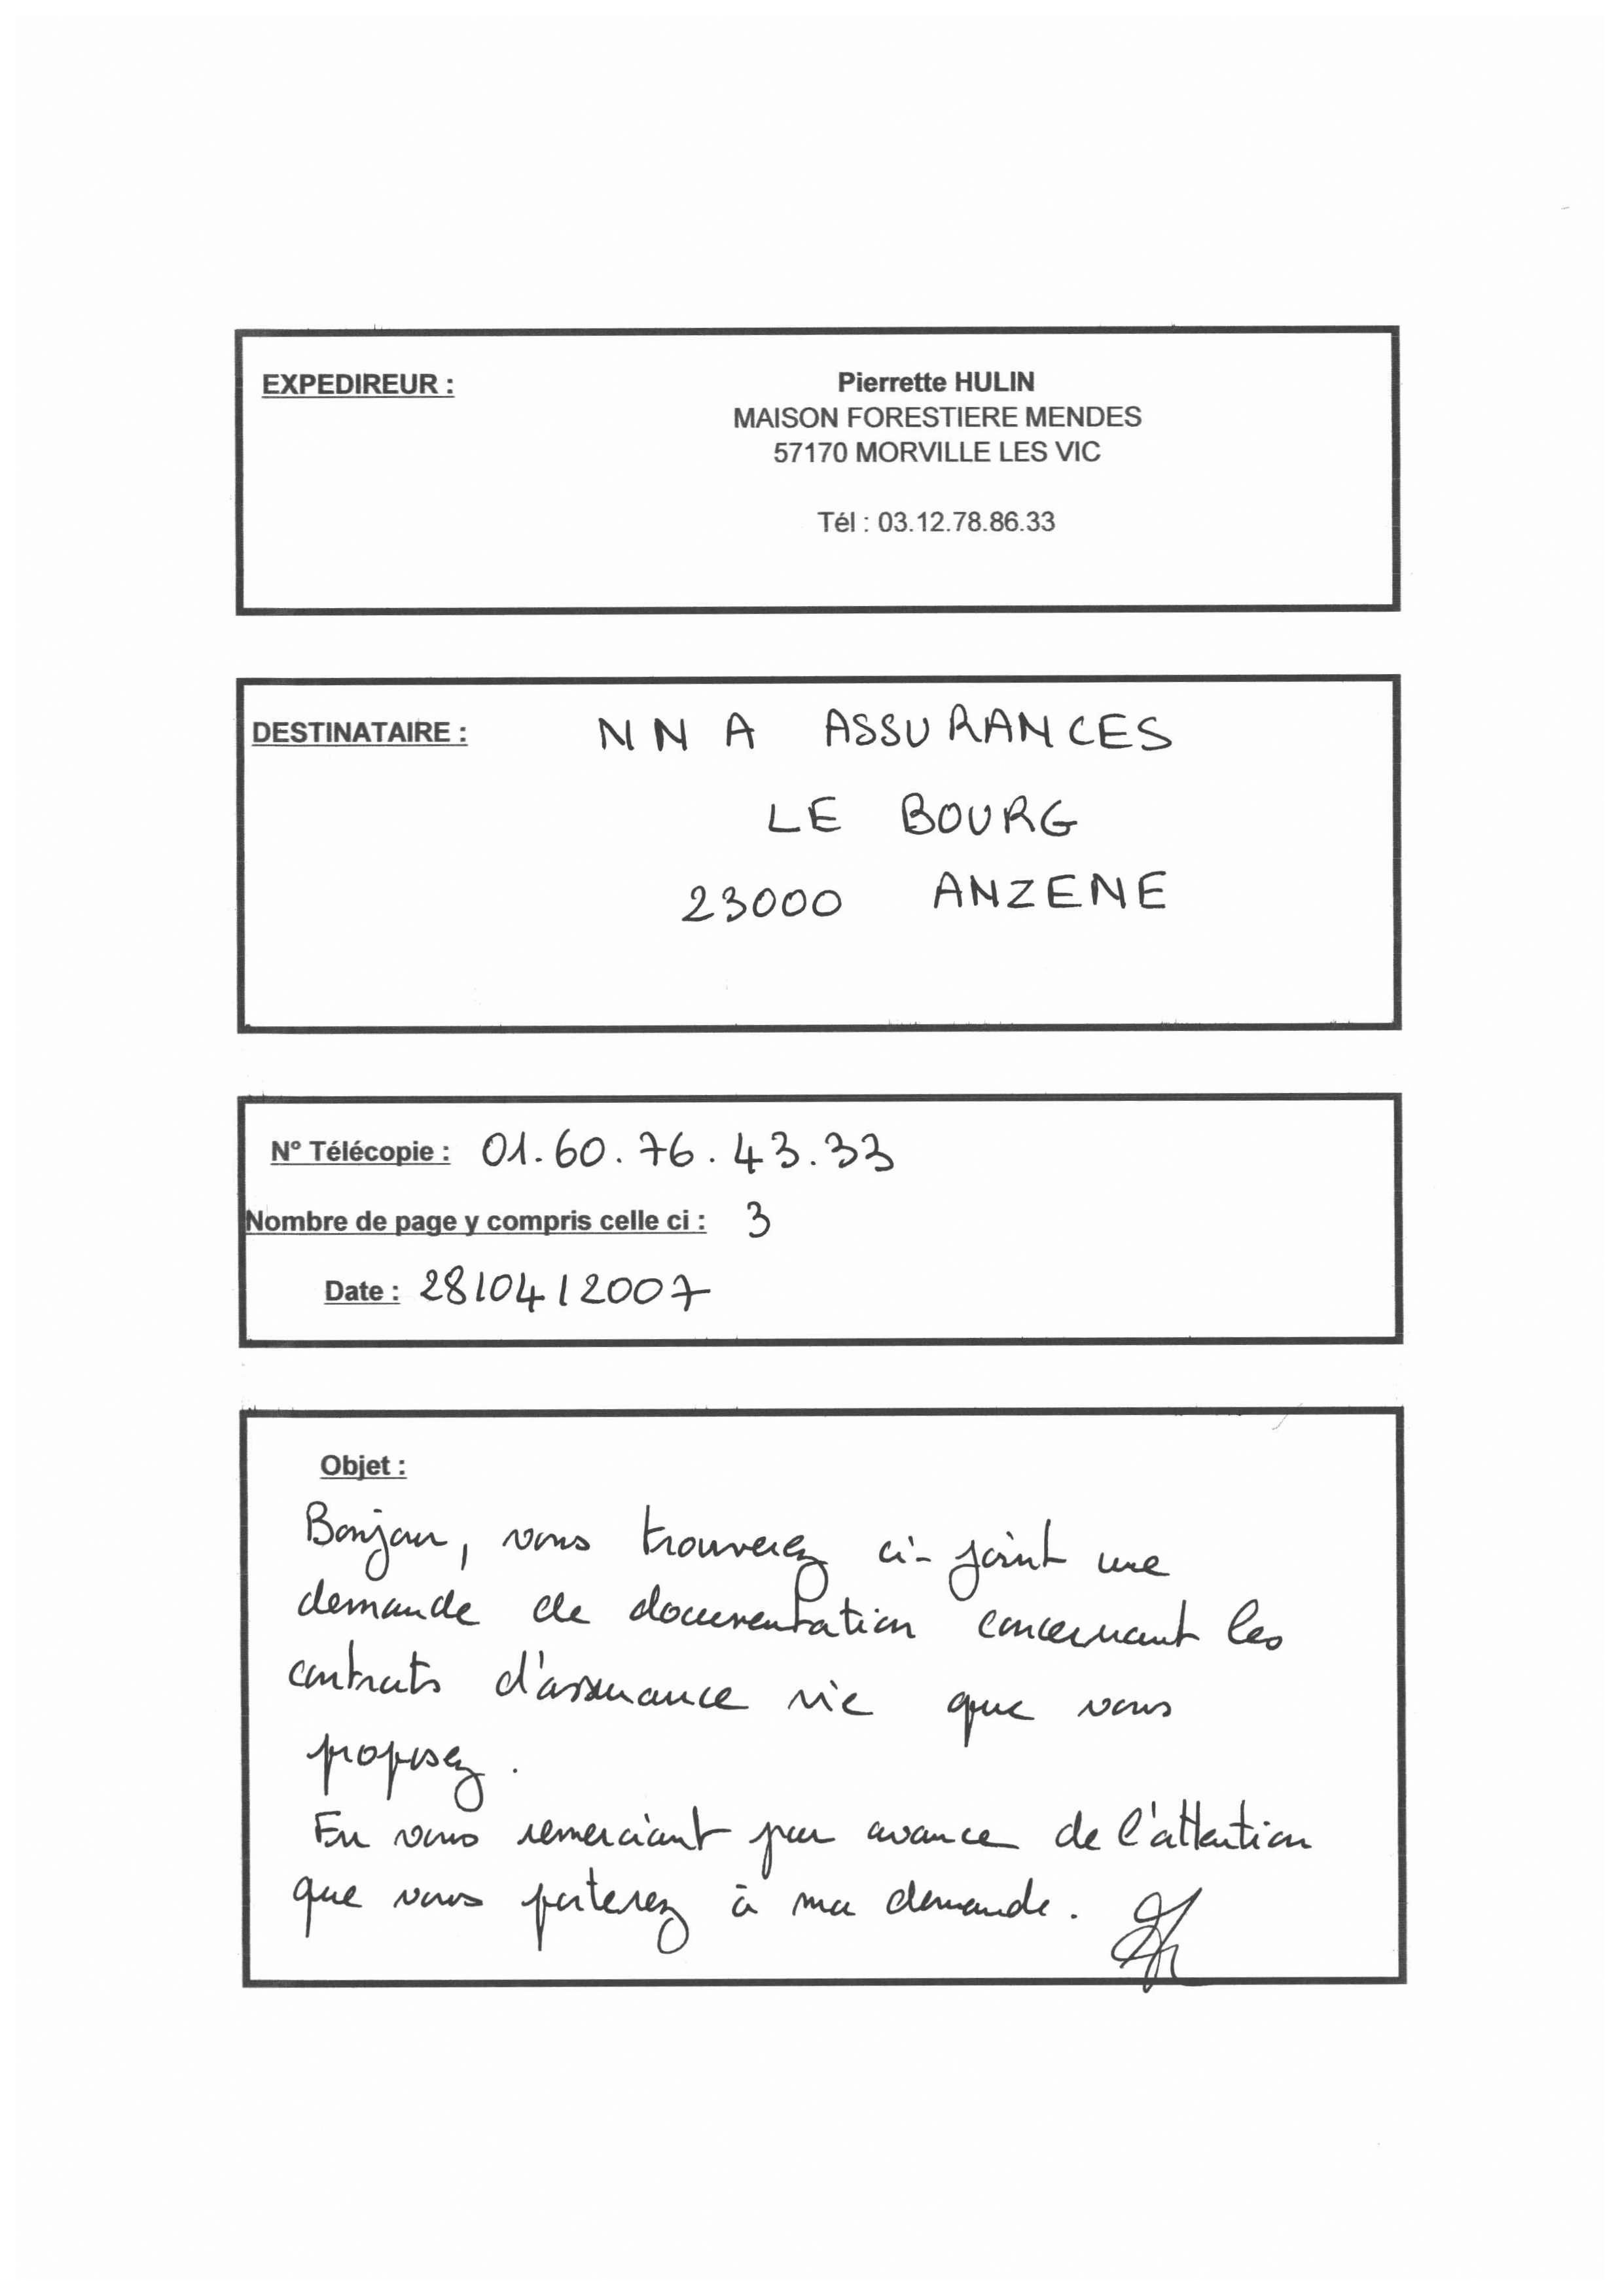 EXPEDIREUR :
Pierrette HULIN
MAISON FORESTIERE MENDES
57170 MORVILLE LES VIC
Tél : 03.12.78.86.33
DESTINATAIRE : NNA ASSURANCES
LE BOURG
23000 ANZENE
N° Télécopie : 01.60.76.43.33
Nombre de page y compris celle ci : 3
Date : 28/04/2007
Objet :
Bonjour, vous trouverez ci-joint une
demande de documentation concernant les
contrats d'assurance vie que vous
proposez.
En vous remerciant par avance de l'attention
que vous porterez à ma demande.